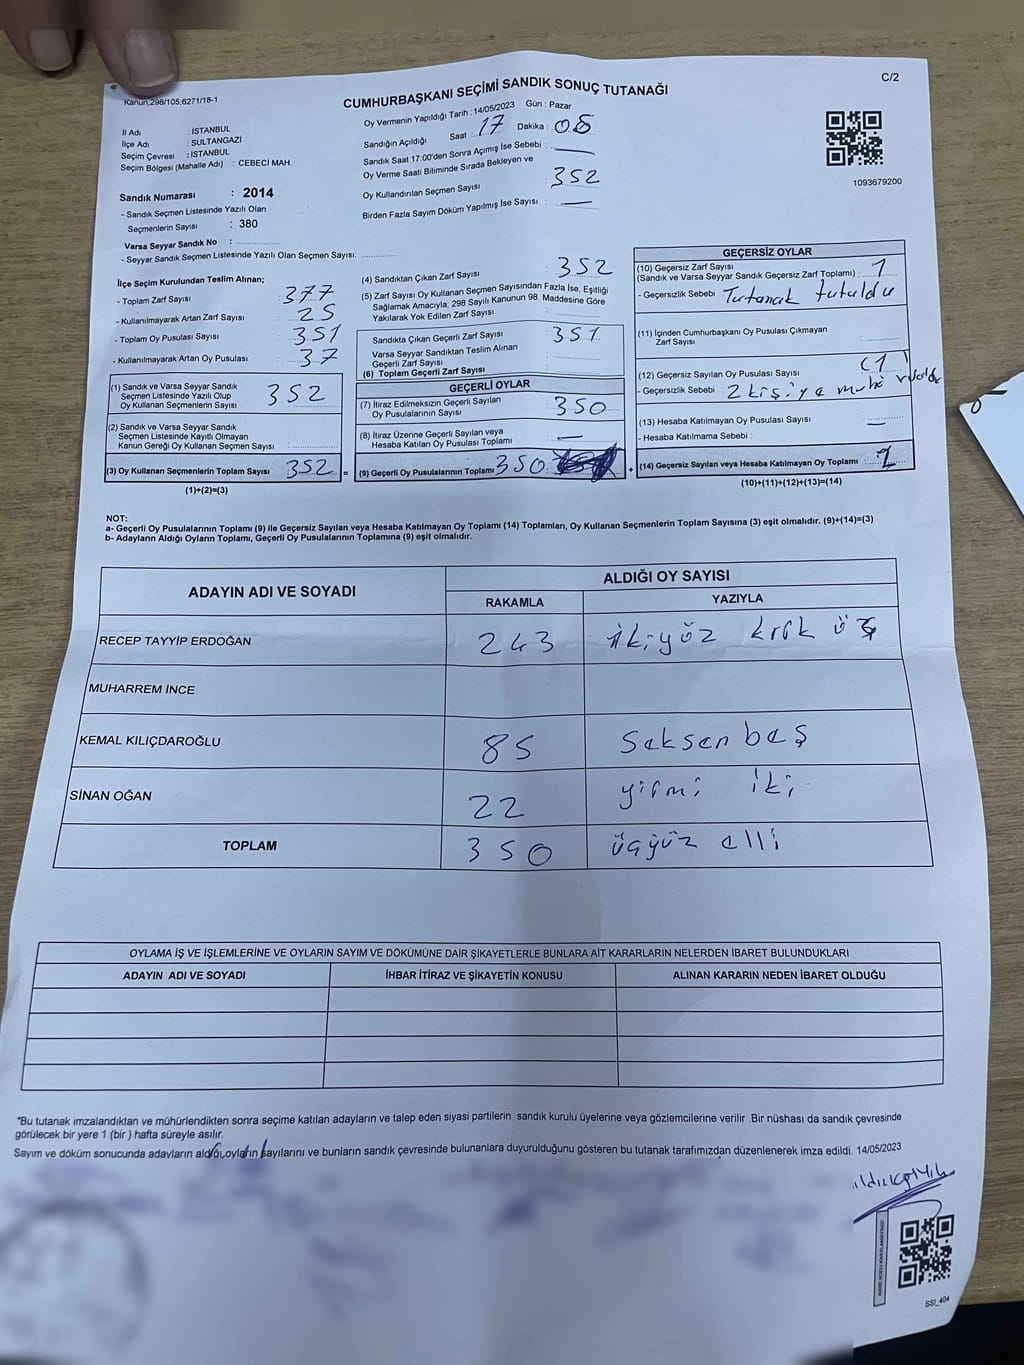 C/2
Kanun,298/105;6271/18-1
CUMHURBAŞKANI SEÇİMİ SANDIK SONUÇ TUTANAĞI
İl Adı : İSTANBUL
İlçe Adı : SULTANGAZİ
Seçim Çevresi : İSTANBUL
Seçim Bölgesi (Mahalle Adı) : CEBECİ MAH.
Sandık Numarası : 2014
- Sandık Seçmen Listesinde Yazılı Olan
Seçmenlerin Sayısı : 380
Varsa Seyyar Sandık No :
- Seyyar Sandık Seçmen Listesinde Yazılı Olan Seçmen Sayısı:
Oy Vermenin Yapıldığı Tarih : 14/05/2023 Gün : Pazar
Sandığın Açıldığı Saat : 17 Dakika : 08
Sandık Saat 17:00'den Sonra Açımış İse Sebebi : —
Oy Verme Saati Bitiminde Sırada Bekleyen ve
Oy Kullandırılan Seçmen Sayısı : 352
Birden Fazla Sayım Döküm Yapılmış İse Sayısı : —
1093679200
İlçe Seçim Kurulundan Teslim Alınan;
- Toplam Zarf Sayısı : 377
- Kullanılmayarak Artan Zarf Sayısı : 25
- Toplam Oy Pusulası Sayısı : 351
- Kullanılmayarak Artan Oy Pusulası : 37
(1) Sandık ve Varsa Seyyar Sandık
Seçmen Listesinde Yazılı Olup
Oy Kullanan Seçmenlerin Sayısı 352
(2) Sandık ve Varsa Seyyar Sandık
Seçmen Listesinde Kayıtlı Olmayan
Kanun Gereği Oy Kullanan Seçmen Sayısı :
(3) Oy Kullanan Seçmenlerin Toplam Sayısı 352 =
(1)+(2)=(3)
(4) Sandıktan Çıkan Zarf Sayısı : 352
(5) Zarf Sayısı Oy Kullanan Seçmen Sayısından Fazla İse, Eşitliği
Sağlamak Amacıyla, 298 Sayılı Kanunun 98. Maddesine Göre
Yakılarak Yok Edilen Zarf Sayısı :
Sandıkta Çıkan Geçerli Zarf Sayısı : 351
Varsa Seyyar Sandıktan Teslim Alınan
Geçerli Zarf Sayısı :
(6) Toplam Geçerli Zarf Sayısı :
GEÇERLİ OYLAR
(7) İtiraz Edilmeksizin Geçerli Sayılan
Oy Pusulalarının Sayısı : 350
(8) İtiraz Üzerine Geçerli Sayılan veya
Hesaba Katılan Oy Pusulası Toplamı : —
(9) Geçerli Oy Pusulalarının Toplamı 350 +
GEÇERSİZ OYLAR
(10) Geçersiz Zarf Sayısı
(Sandık ve Varsa Seyyar Sandık Geçersiz Zarf Toplamı) : 1
- Geçersizlik Sebebi : Tutanak tutuldu
(11) İçinden Cumhurbaşkanı Oy Pusulası Çıkmayan
Zarf Sayısı :
(12) Geçersiz Sayılan Oy Pusulası Sayısı (1)
- Geçersizlik Sebebi : 2 kişiye
(13) Hesaba Katılmayan Oy Pusulası Sayısı : —
- Hesaba Katılmama Sebebi :
(14) Geçersiz Sayılan veya Hesaba Katılmayan Oy Toplamı : 2
(10)+(11)+(12)+(13)=(14)
NOT:
a- Geçerli Oy Pusulalarının Toplamı (9) ile Geçersiz Sayılan veya Hesaba Katılmayan Oy Toplamı (14) Toplamları, Oy Kullanan Seçmenlerin Toplam Sayısına (3) eşit olmalıdır. (9)+(14)=(3)
b- Adayların Aldığı Oyların Toplamı, Geçerli Oy Pusulalarının Toplamına (9) eşit olmalıdır.
ADAYIN ADI VE SOYADI
ALDIĞI OY SAYISI
RAKAMLA YAZIYLA
RECEP TAYYİP ERDOĞAN 243 ikiyüz kırk üç
MUHARREM İNCE
KEMAL KILIÇDAROĞLU 85 Seksen beş
SİNAN OĞAN 22 yirmi iki
TOPLAM 350 üçyüz elli
OYLAMA İŞ VE İŞLEMLERİNE VE OYLARIN SAYIM VE DÖKÜMÜNE DAİR ŞİKAYETLERLE BUNLARA AİT KARARLARIN NELERDEN İBARET BULUNDUKLARI
ADAYIN ADI VE SOYADI İHBAR İTİRAZ VE ŞİKAYETİN KONUSU ALINAN KARARIN NEDEN İBARET OLDUĞU
"Bu tutanak imzalandıktan ve mühürlendikten sonra seçime katılan adayların ve talep eden siyasi partilerin sandık kurulu üyelerine veya gözlemcilerine verilir .Bir nüshası da sandık çevresinde
görülecek bir yere 1 (bir ) hafta süreyle asılır.
Sayım ve döküm sonucunda adayların aldığı oyların sayılarını ve bunların sandık çevresinde bulunanlara duyurulduğunu gösteren bu tutanak tarafımızdan düzenlenerek imza edildi. 14/05/2023
SSI_404